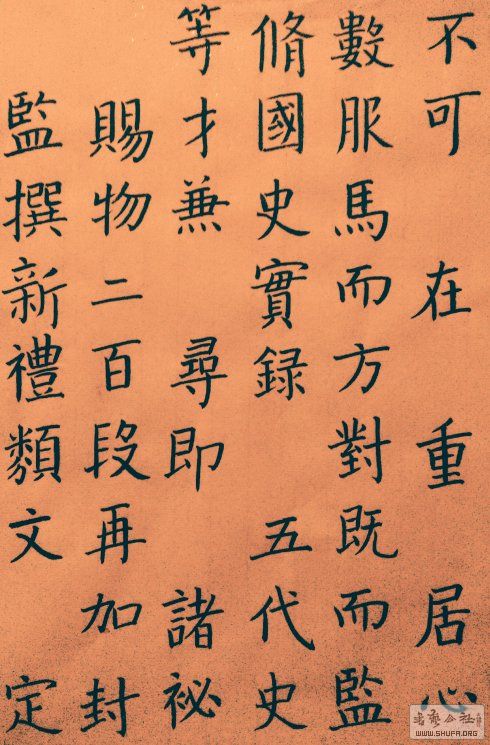 不可　在　重　居心
數服馬而方對既而監
脩國史實録　五代史
等才兼　尋即　諸祕
賜物二百段再加封
監撰新禮類文　定
书艺公社
WWW.SHUFA.ORG